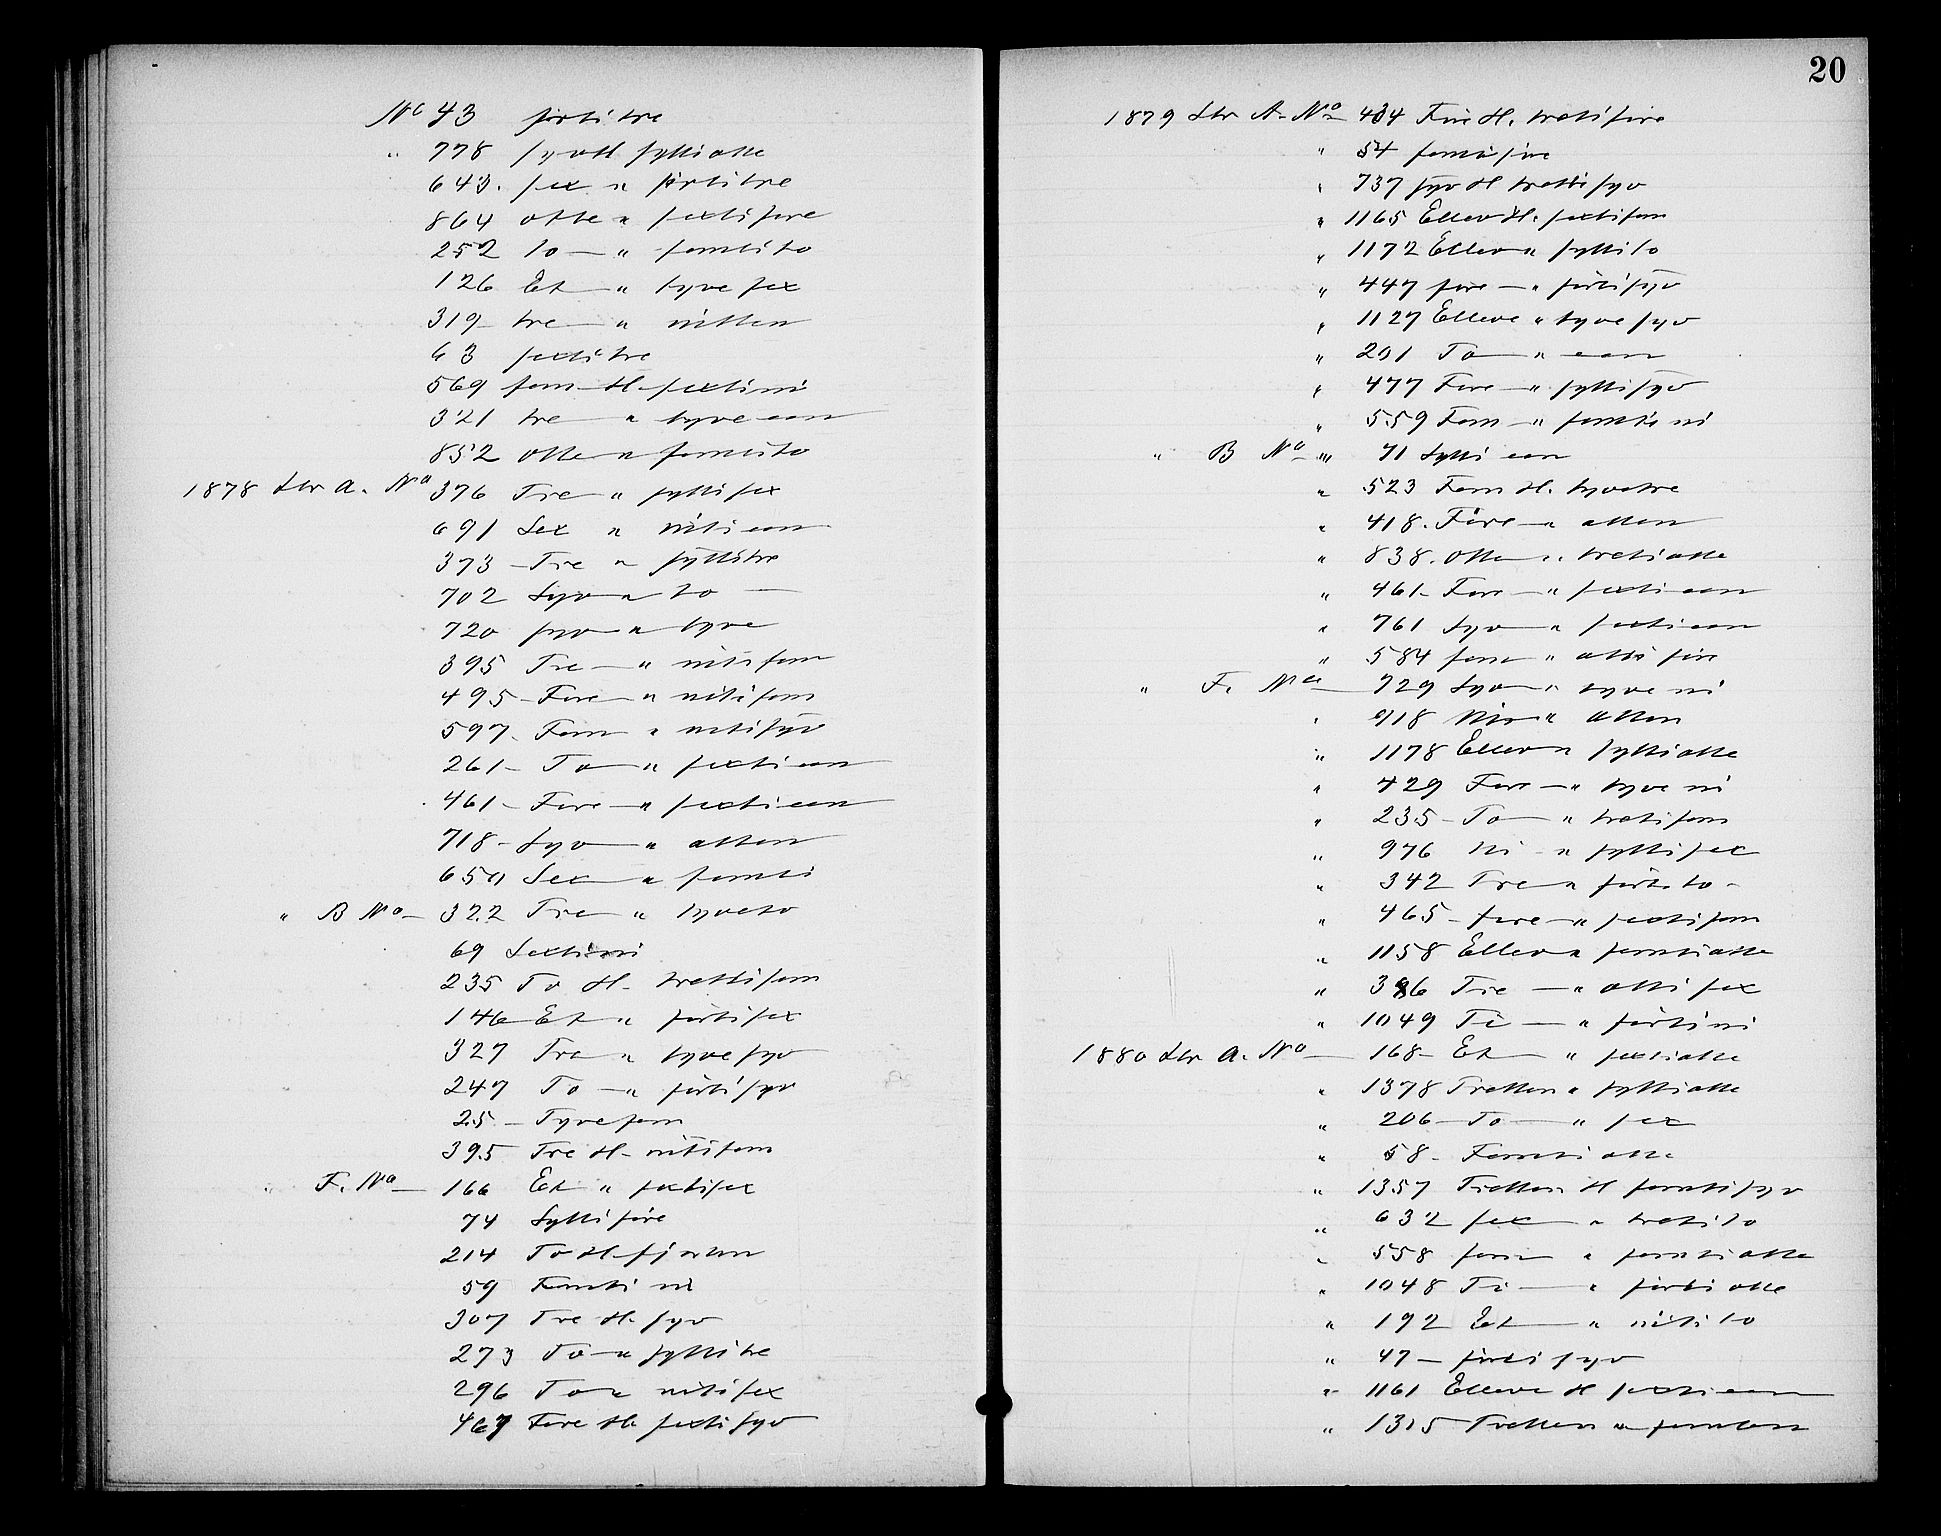 No 43 förtitre
" 778 syv H. sytti otte
643. sex " förtitre
864 otte " sextifire
252 to — " femtito
126 Et — " tyvesex
319 tre — " nitten
63 sextitre
569 fem H. sextini
321 tre — " tyve een
852 otte " femtito
1878 Ltr A. No 376 Tre " syttisex
691 Sex " niti een
373 Tre " syttitre
702 Syv " to —
720 syv " tyve
395 Tre — " nitifem
495 Fire — " nitifem
597 Fem " nitisyv
261 — To " sexti een
461 — Fire — " sexti een
718 — Syv — " atten
650 Sex — " femti
" B No — 322 Tre " tyveto
69 Sextini
235 To H. trettifem
146 Et " förtisex
327 Tre " tyvesyv
247 To — " förtisyv
25 — Tyvefem
395 Tre H. nitifem
" F. No — 166 Et " sextisex
74 Syttifire
214 To H. fjorten
59 Femti ni
307 Tre H. syv
273 To — " syttitre
296 To " nitisex
467 Fire H. sextisyv
20
1879 Ltr A. No 434 Fire H. tretifire
" 54 femtifire
" 737 syv H trettisyv
" 1165 Ellev H. sextifem
" 1172 Ellev " syttito
" 447 fire — " förtisyv
" 1127 Elleve " tyvesyv
" 201 To — " een
" 477 Fire — " syttisyv
" 559 Fem — " femti ni
" B No " 71 Sytti een
" 523 Fem H. tyvetre
" 418. Fire — " atten
" 838. Otte " tretiotte
" 461 — Fire — " sexti een
" 761 Syv — " sexti een
" 584 fem " otti fire
" F. No — 729 Syv " tyve ni
" 918 Ni " Atten
" 1178 Ellev " syttiotte
" 429 Fire — " tyve ni
" 235 — To — " tretifem
" 976 Ni — " syttisex
" 342 Tre " förtito —
" 465 — fire — " sextifem
" 1158 Ellev " femtiotte
" 386 Tre — " otti sex
" 1049 Ti — " förtini
1880 Ltr A. No — 168 — Et — " sextiotte
" 1378 Tretten " syttiotte
" 206 — To — " sex
" 58 — Femti otte
" 1357 Tretten H femtisyv
" 632 sex — " tretito
" 558 fem " femtiotte
" 1048 Ti — " förtiotte
" 192 Et — " nitito
" 47 — förtisyv
" 1161 Elleve H sexti een
" 1315 Tretten " femten